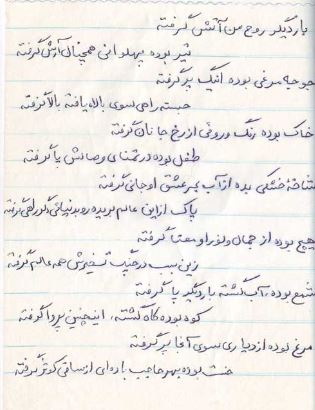 بار دیگر روح من آتش گرفته
تیر بوده پهلوانی همچنان آرش گرفته
جوجه مرغی بوده اینک پر گرفته
جسته راهی سوی بالا یافته بالا گرفته
خاک بوده رنگ و روئی از رخ جانان گرفته
طفل بوده در تمنای وصالش پا گرفته
شاخهٔ خشکی بده از آب بحر عشق او جانی گرفته
پاک ازین عالم بریده رو به راهی گرفته
هیچ بوده از جمال و نور او معنا گرفته
زین سبب در تسخیرش همه عالم گرفته
شمع بوده، آب گشته بار دیگر پا گرفته
کوه بوده کاه گشته، اینچنین پروا گرفته
مرغ بوده از دیاری سوی آقا پر گرفته
بوده بهر حاجب باده‌ای از ساقی کوثر گرفته